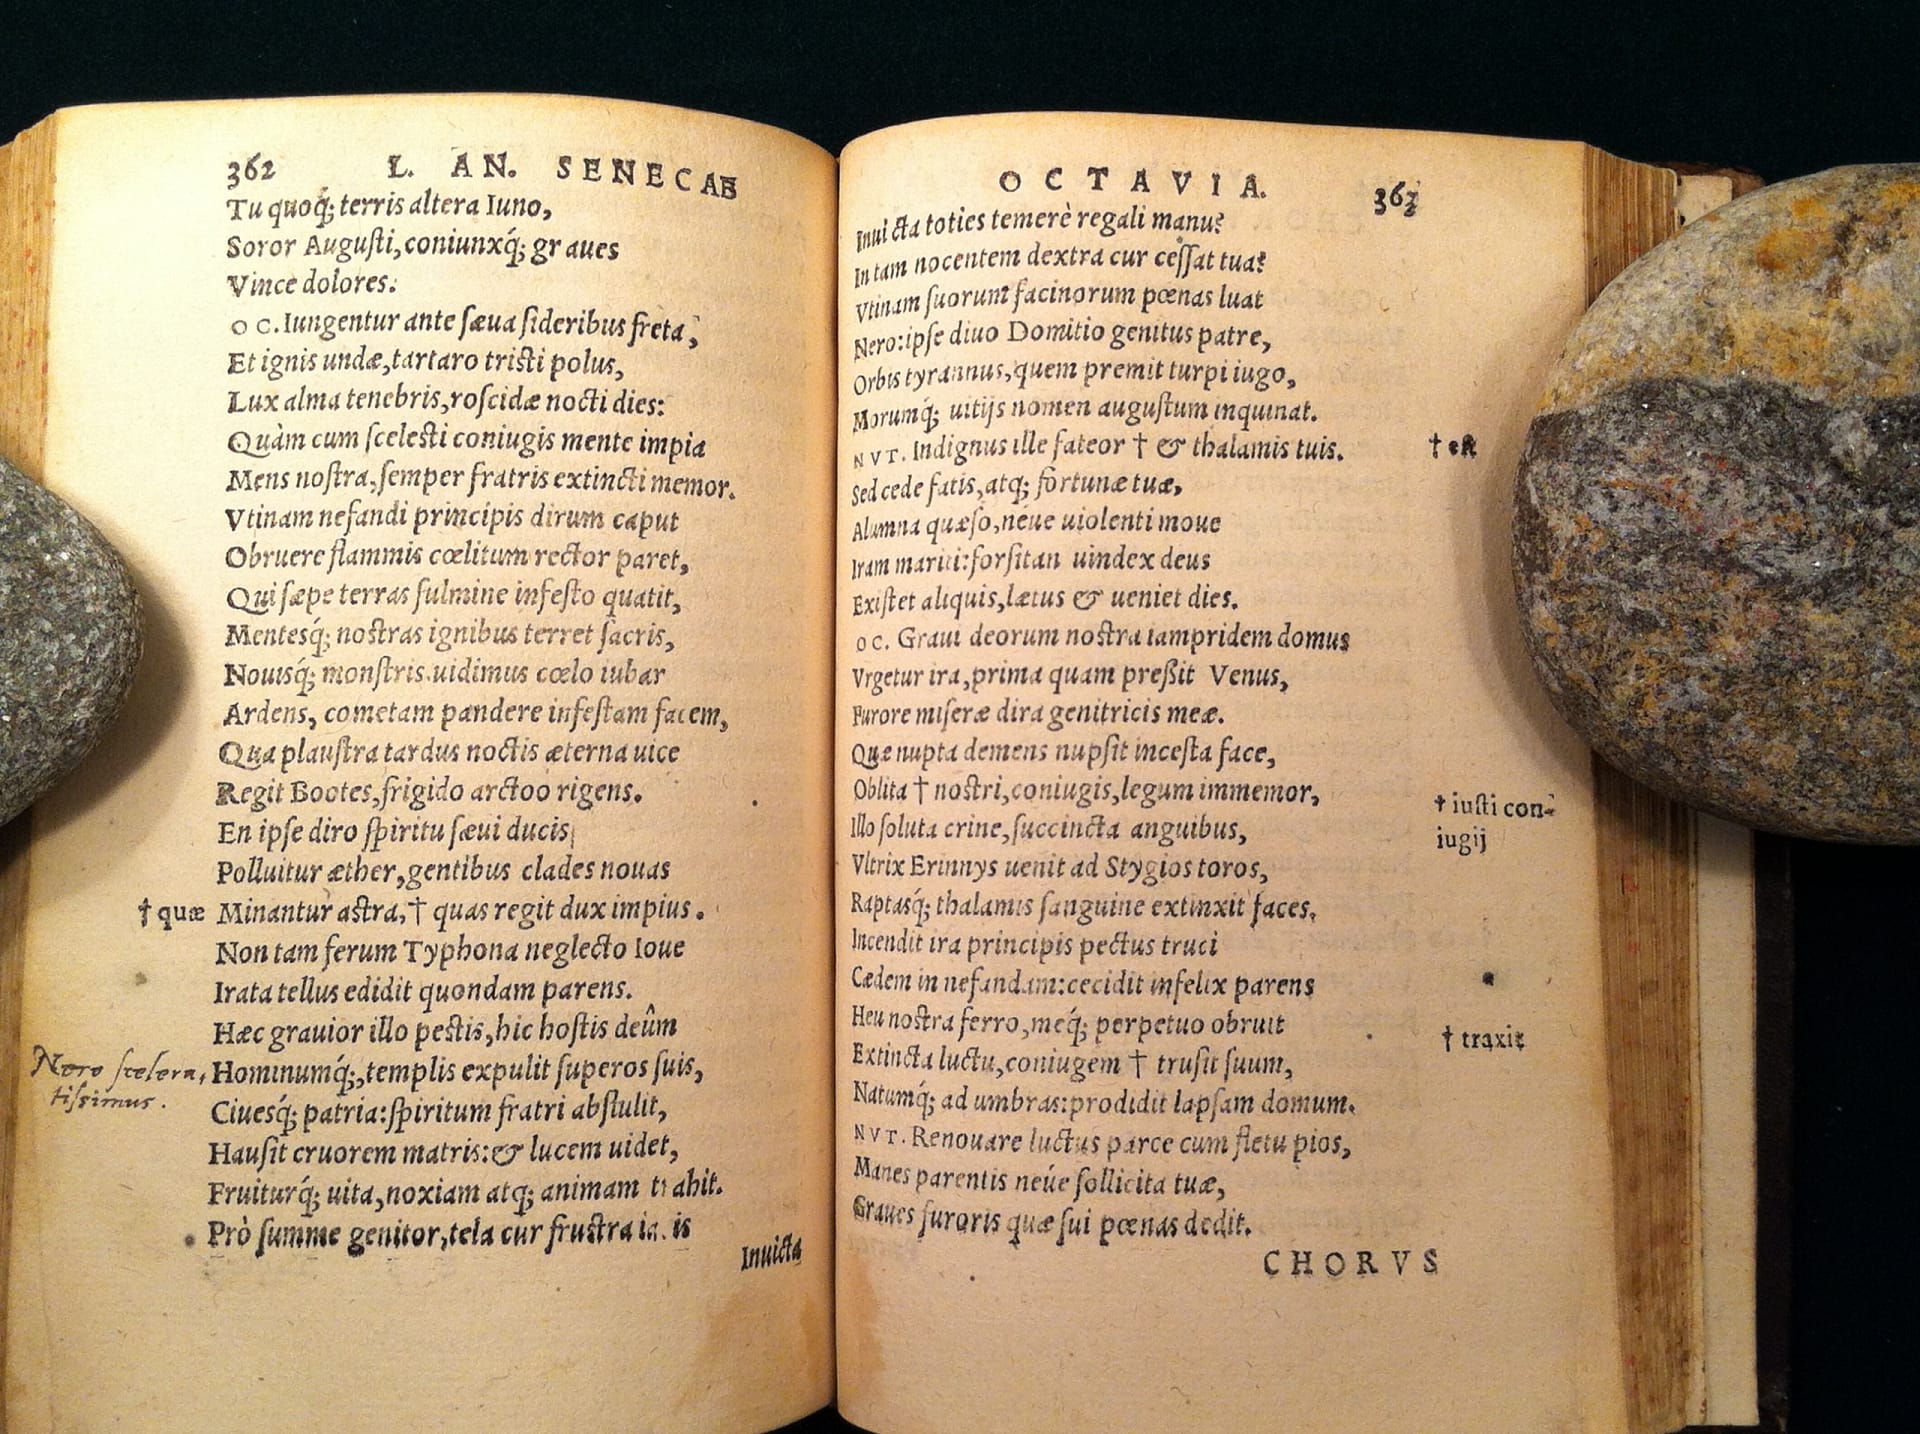 362 L. AN. SENECAE
Tu quoq́; terris altera Iuno,
Soror Auguſti, coniunxq́; graues
Vince dolores.
OC. Iungentur ante ſæua ſideribus freta,
Et ignis undæ, tartaro triſti polus,
Lux alma tenebris, roſcidæ nocti dies:
Quàm cum ſceleſti coniugis mente impia
Mens noſtra, ſemper fratris extincti memor.
Vtinam nefandi principis dirum caput
Obruere flammis cœlitum rector paret,
Qui ſæpe terras fulmine infeſto quatit,
Mentesq́; noſtras ignibus terret ſacris,
Nouisq́; monſtris. uidimus cœlo iubar
Ardens, cometam pandere infeſtam facem,
Qua plauſtra tardus noctis æterna uice
Regit Bootes, frigido arctoo rigens.
En ipſe diro ſpiritu ſæui ducis
Polluitur æther, gentibus clades nouas
† quæ Minantur aſtra, † quas regit dux impius.
Non tam ferum Typhona neglecto Ioue
Irata tellus edidit quondam parens.
Hæc grauior illo peſtis, hic hoſtis deûm
Nero ſcelera, Hominumq́;, templis expulit ſuperos ſuis,
tiſsimus. Ciuesq́; patria: ſpiritum fratri abſtulit,
Hauſit cruorem matris: & lucem uidet,
Fruiturq́; uita, noxiam atq; animam trahit.
Prò ſumme genitor, tela cur fruſtra is
Inuicta
OCTAVIA. 363
Inuicta toties temerè regali manu?
In tam nocentem dextra cur ceſſat tua?
Vtinam ſuorum facinorum pœnas luat
Nero: ipſe diuo Domitio genitus patre,
Orbis tyrannus, quem premit turpi iugo,
Morumq́; uitijs nomen auguſtum inquinat.
NVT. Indignus ille fateor † & thalamis tuis. † eſt
Sed cede fatis, atq; fortunæ tuæ,
Alumna quæſo, néue uiolenti moue
Iram mariti: forſitan uindex deus
Exiſtet aliquis, lætus & ueniet dies.
OC. Graui deorum noſtra iampridem domus
Vrgetur ira, prima quam preßit Venus,
Furore miſeræ dira genitricis meæ.
Quæ nupta demens nupſit inceſta face,
Oblita † noſtri, coniugis, legum immemor, † iuſti con-
Illo ſoluta crine, ſuccincta anguibus, iugij
Vltrix Erinnys uenit ad Stygios toros,
Raptasq́; thalamis ſanguine extinxit faces,
Incendit ira principis pectus truci
Cædem in nefandam: cecidit infelix parens
Heu noſtra ferro, meq́; perpetuo obruit † traxit
Extincta luctu, coniugem † truſit ſuum,
Natumq́; ad umbras: prodidit lapſam domum.
NVT. Renouare luctus parce cum fletu pios,
Manes parentis neúe ſollicita tuæ,
Graues furoris quæ ſui pœnas dedit.
CHORVS